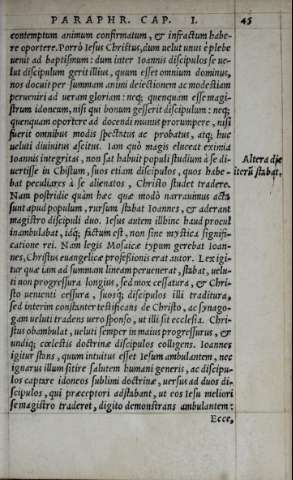 PARAPHR. CAP. I. 45
contemptum animum confirmatum, & infractum habe-
re oportere. Porrò Iesus Christus, dum uelut unus è plebe
uenit ad baptismum: dum inter Ioannis discipulos se ue-
lut discipulum gerit illius, quum esset omnium dominus,
nos docuit per summam animi deiectionem ac modestiam
perueniri ad ueram gloriam: neq; quenquam esse magi-
strum idoneum, nisi qui bonum gesserit discipulum: neq;
quenquam oportere ad docendi munus prorumpere, nisi
fuerit omnibus modis spectatus ac probatus, atq; huc
ueluti diuinitus ascitus. Iam quò magis eluceat eximia
Ioannis integritas, non sat habuit populi studium à se di-
uertisse in Christum, suos etiam discipulos, quos habe-
bat peculiares à se alienatos, Christo studet tradere.
Nam postridie quàm hæc quæ modò narrauimus acta
sunt apud populum, rursum stabat Ioannes, & aderant
magistro discipuli duo. Iesus autem illhinc haud procul
inambulabat, idq; fictum est, non sine mystica signifi-
catione rei. Nam legis Mosaicæ typum gerebat Ioan-
nes, Christus euangelicæ professionis erat autor. Lex igi-
tur quæ iam ad summam lineam peruenerat, stabat, uelu-
ti non progressura longius, sed mox cessatura, & Chri-
sto uenienti cessura, suosq; discipulos illi traditura,
sed interim constanter testificans de Christo, ac synago-
gam ueluti tradens uero sponso, ut illi sit ecclesia. Chri-
stus obambulat, ueluti semper in maius progressurus, &
undiq; cœlestis doctrinæ discipulos colligens. Ioannes
igitur stans, quum intuitus esset Iesum ambulantem, nec
ignarus illum sitire salutem humani generis, ac discipu-
los captare idoneos sublimi doctrinæ, uersus ad duos di-
scipulos, qui præceptori adstabant, ut eos Iesu meliori
se magistro traderet, digito demonstrans ambulantem:
Ecce,
Altera die
iterū stabat.